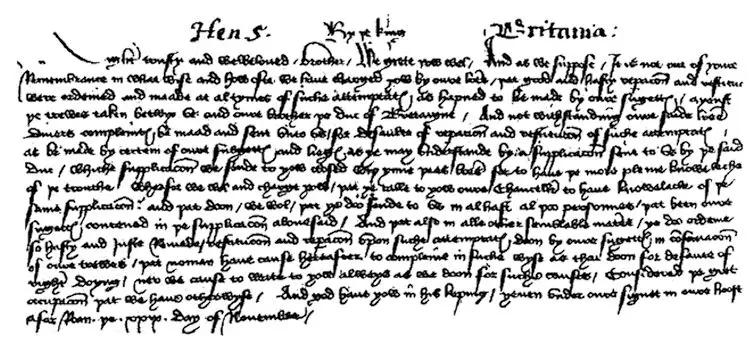 Hen 5. By þe king Britania:
trusty and welbeloved brother, We grete yow wel, And as we suppose, It is not oute of youre
Remembrance in what wyse and how ofte we have charged yow by oure lettres þat good and hasty reparacion and restitucion
were ordeined and maade at al tymes of suche attemptats, as hapned to be made by oure suggetts, ayenst
þe trewes taken betwyx us and oure brother þe duc of Bretaigne, And not withstanding oure saide lettres
divers complaints be maad and sent unto us for defaulte of reparacion and restitucion of suche attemptats,
as be made by certein of oure suggetts and lieges as ye may understande by a supplicacion sent to us by þe said
duc, whiche supplicacion we sende to yow closed withynne þees lettres for to have þe more pleine knowelache
of þe trouthe, Wherfor we wol and charge yow, þat ye calle to yow oure Chanceller to have knowalache of þe
same supplicacion: and þat doon, we wol, þat ye do sende to us in al hast al þoo personnes, þat been oure
suggetts contened in þe supplicacion abovesaid, And þat also in alle other semblable materes, ye do ordeine
so hasty and Juste Remede, restitucion and reparacion upon suche attemptats, doon by oure suggetts in conservacion
of oure trewes, þat noman have cause hereafter, to compleine in suche wyse as thai doon for defaute of
right doyng, ner we cause to write to yow alwayes as we doon for suche causes, Considered þe gret
occupacion þat we have otherwyse, And god have yow in his keping, yeven under oure signet in oure hoost
afore Roan. þe. xxix. day of November,